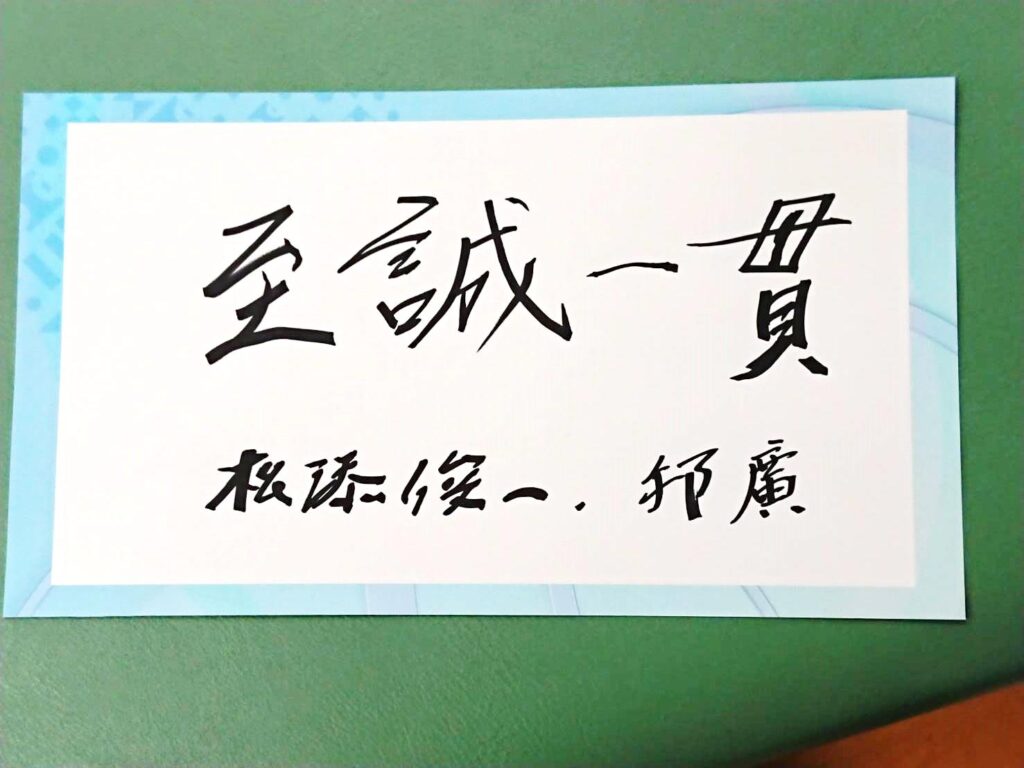 至誠一貫
松添俊一.邦廣